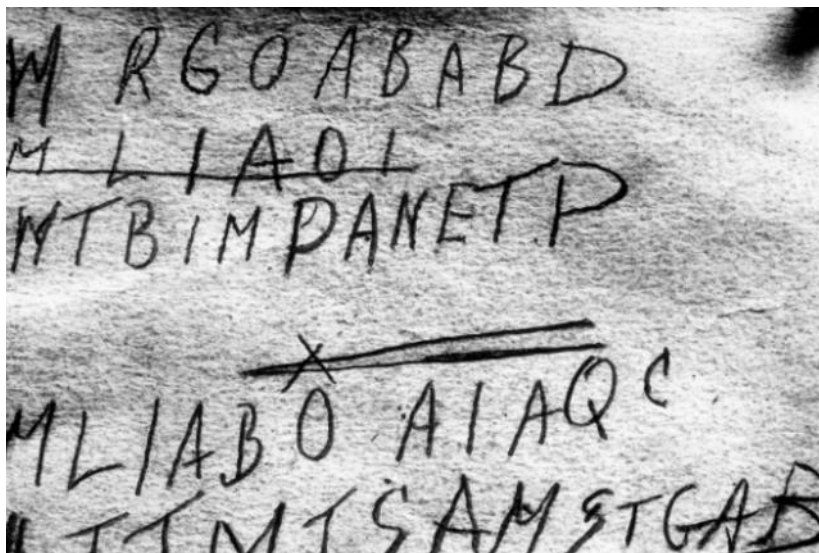 M RGOABABD
M LIAOI
MTBIMPANETP
MLIABO AIAQC
ITTMTSAMSTGAB